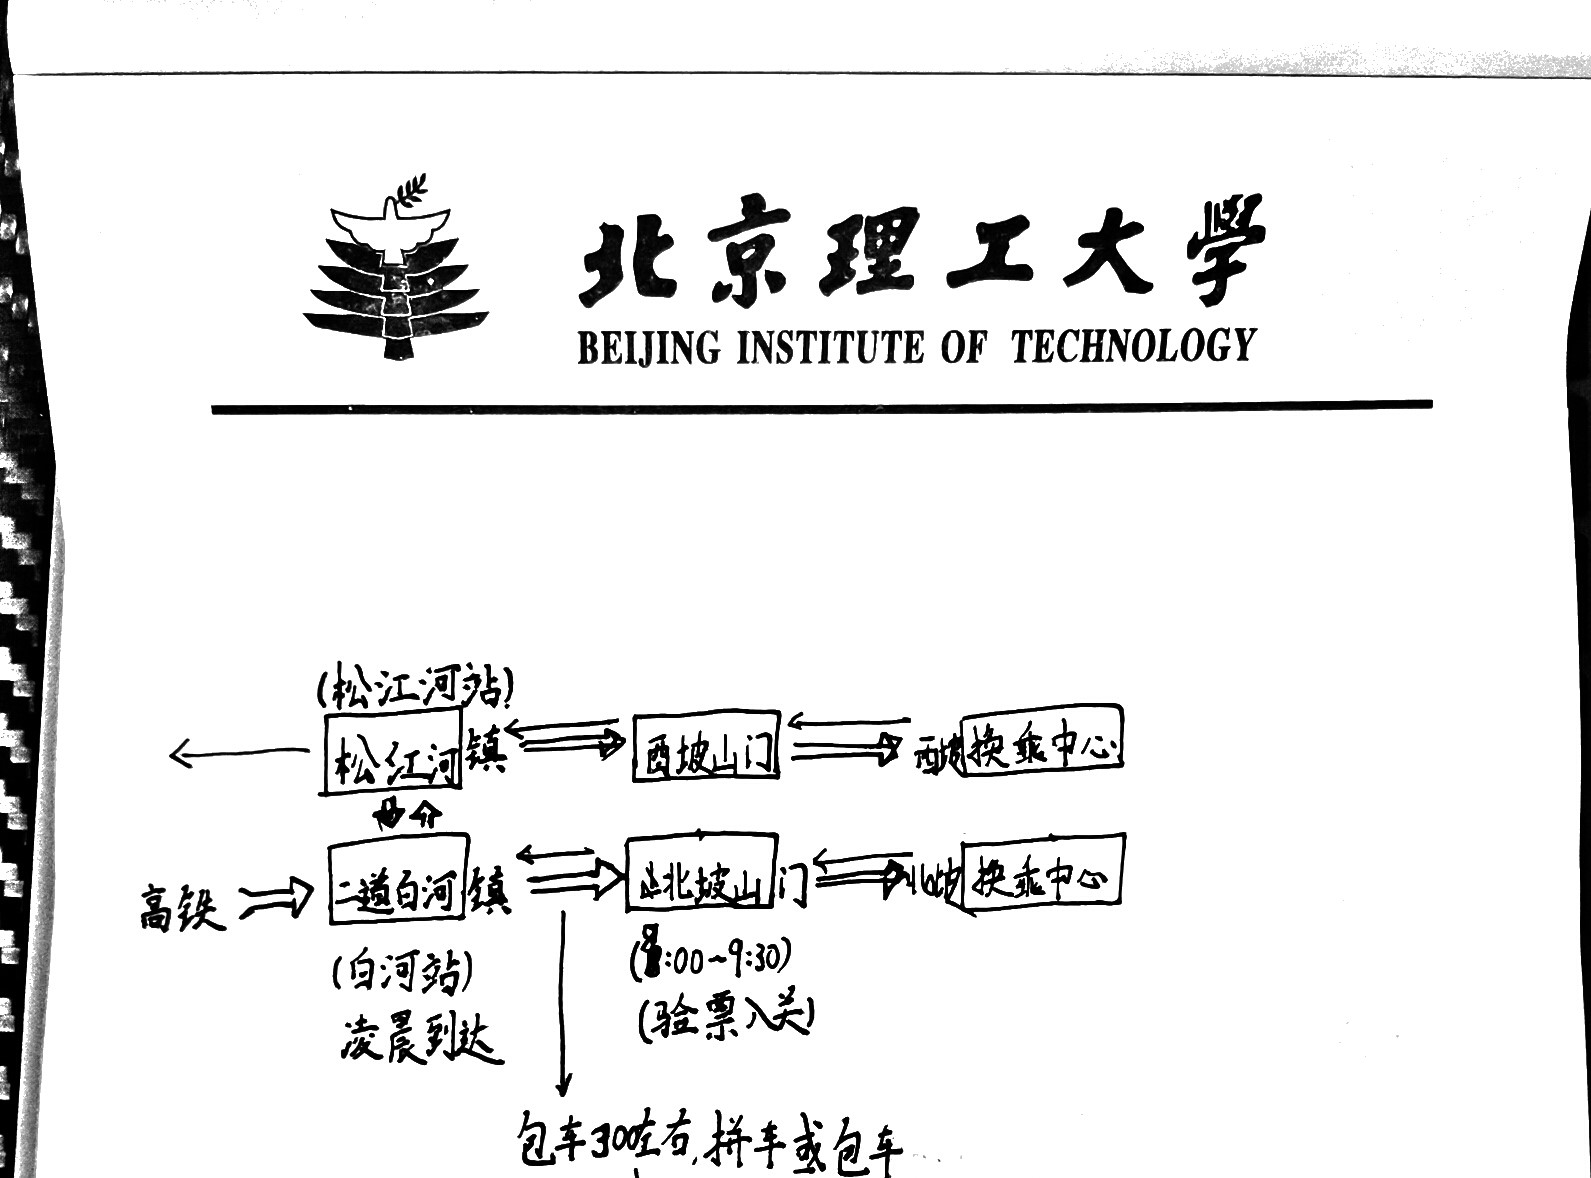 北京理工大学
BEIJING INSTITUTE OF TECHNOLOGY
(松江河站)
松江河镇
西坡山门
西坡换乘中心
高铁
二道白河镇
北坡山门
北坡换乘中心
(白河站)
(8:00~9:30)
凌晨到达
(验票入关)
包车300左右,拼车或包车